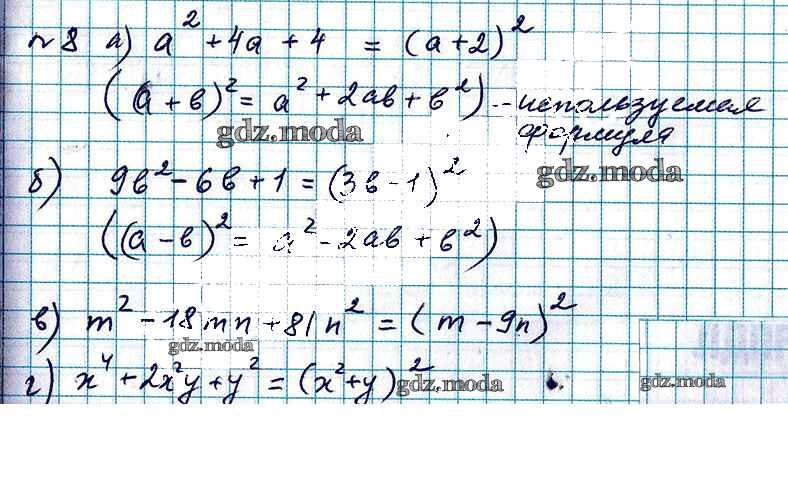 № 8 а) a² + 4a + 4 = (a + 2)²
((a + b)² = a² + 2ab + b²) -- используемая
формула
gdz.moda
gdz.moda
б) 9b² - 6b + 1 = (3b - 1)²
((a - b)² = a² - 2ab + b²)
в) m² - 18mn + 81n² = (m - 9n)²
gdz.moda
г) x⁴ + 2x²y + y² = (x² + y)²
gdz.moda
gdz.moda